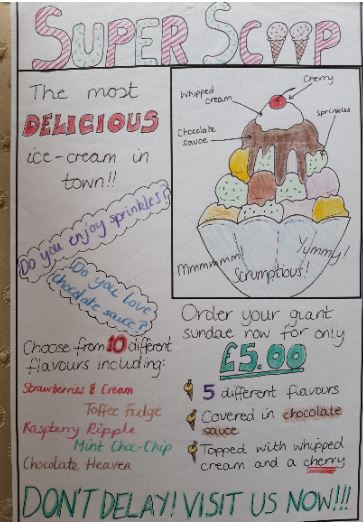 SUPER SCOOP
The most
DELICIOUS
ice-cream in
town!!
Do you enjoy sprinkles?
Do you love
chocolate sauce?
Choose from 10 different
flavours including:
Strawberries & Cream
Toffee Fudge
Raspberry Ripple
Mint Choc-Chip
Chocolate Heaven
Cherry
Whipped
cream
Sprinkles
Chocolate
sauce
Mmmmmm!
Scrumptious!
Yummy!
Order your giant
sundae now for only
£5.00
5 different flavours
Covered in chocolate
sauce
Topped with whipped
cream and a cherry
DON'T DELAY!! VISIT US NOW!!!